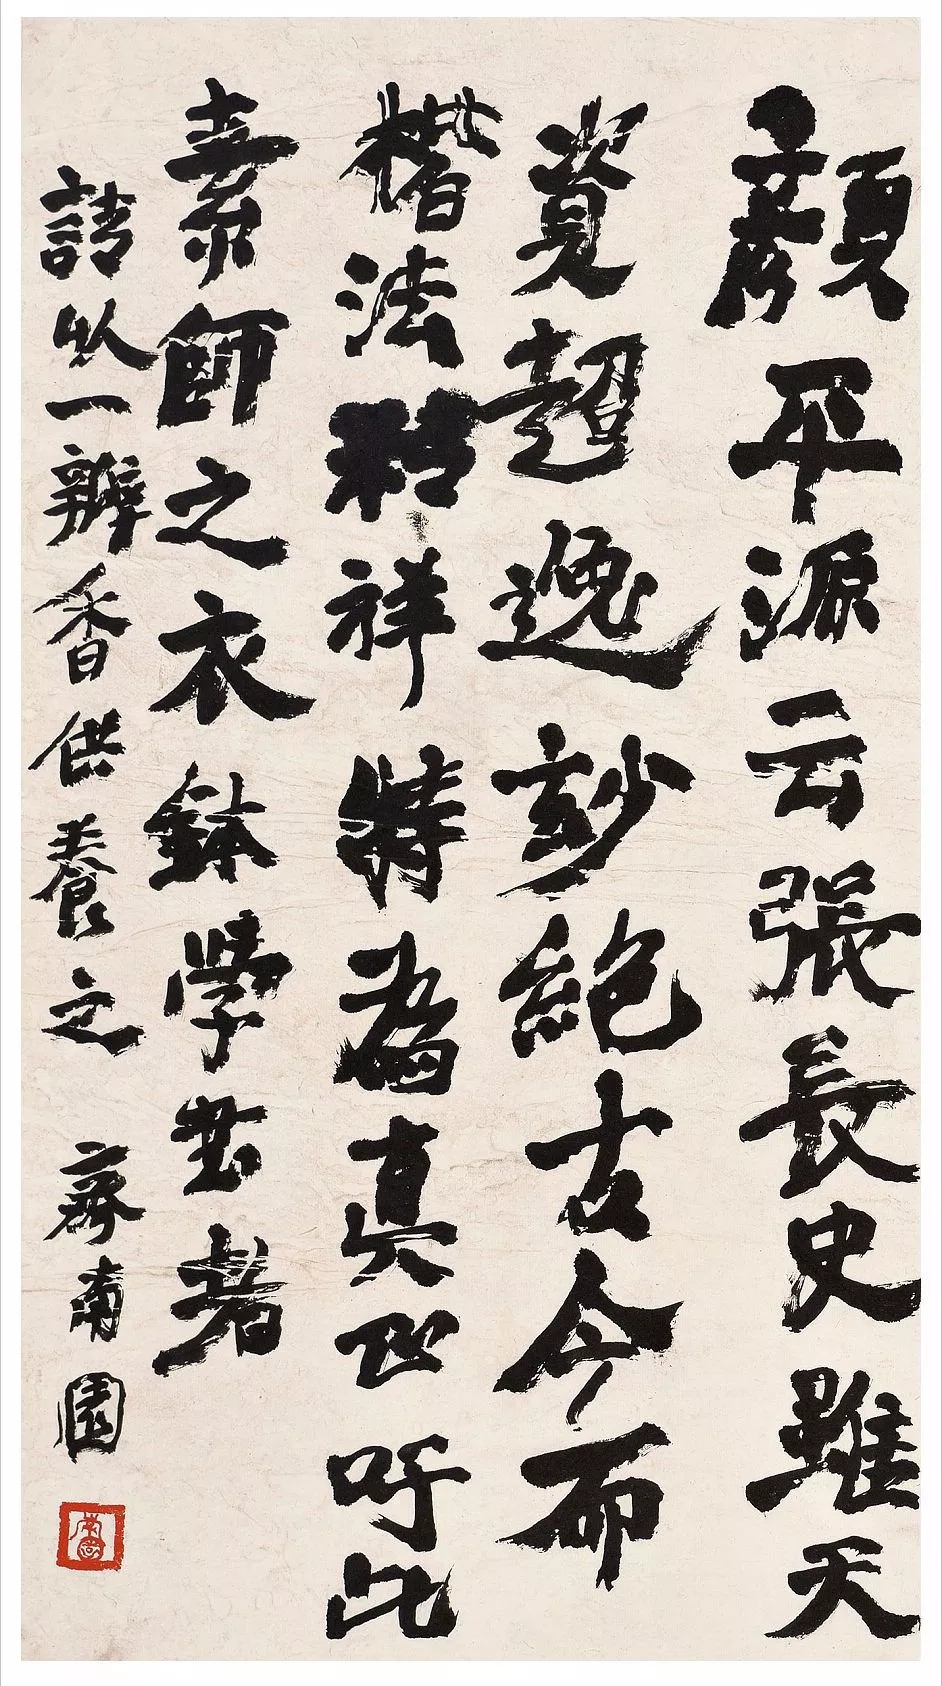 顔平源云張長史雖天
資超逸妙絕古今而
楷法精祥特為真正吁此
素師之衣鉢學書者
請以一瓣香供養之 齊南園